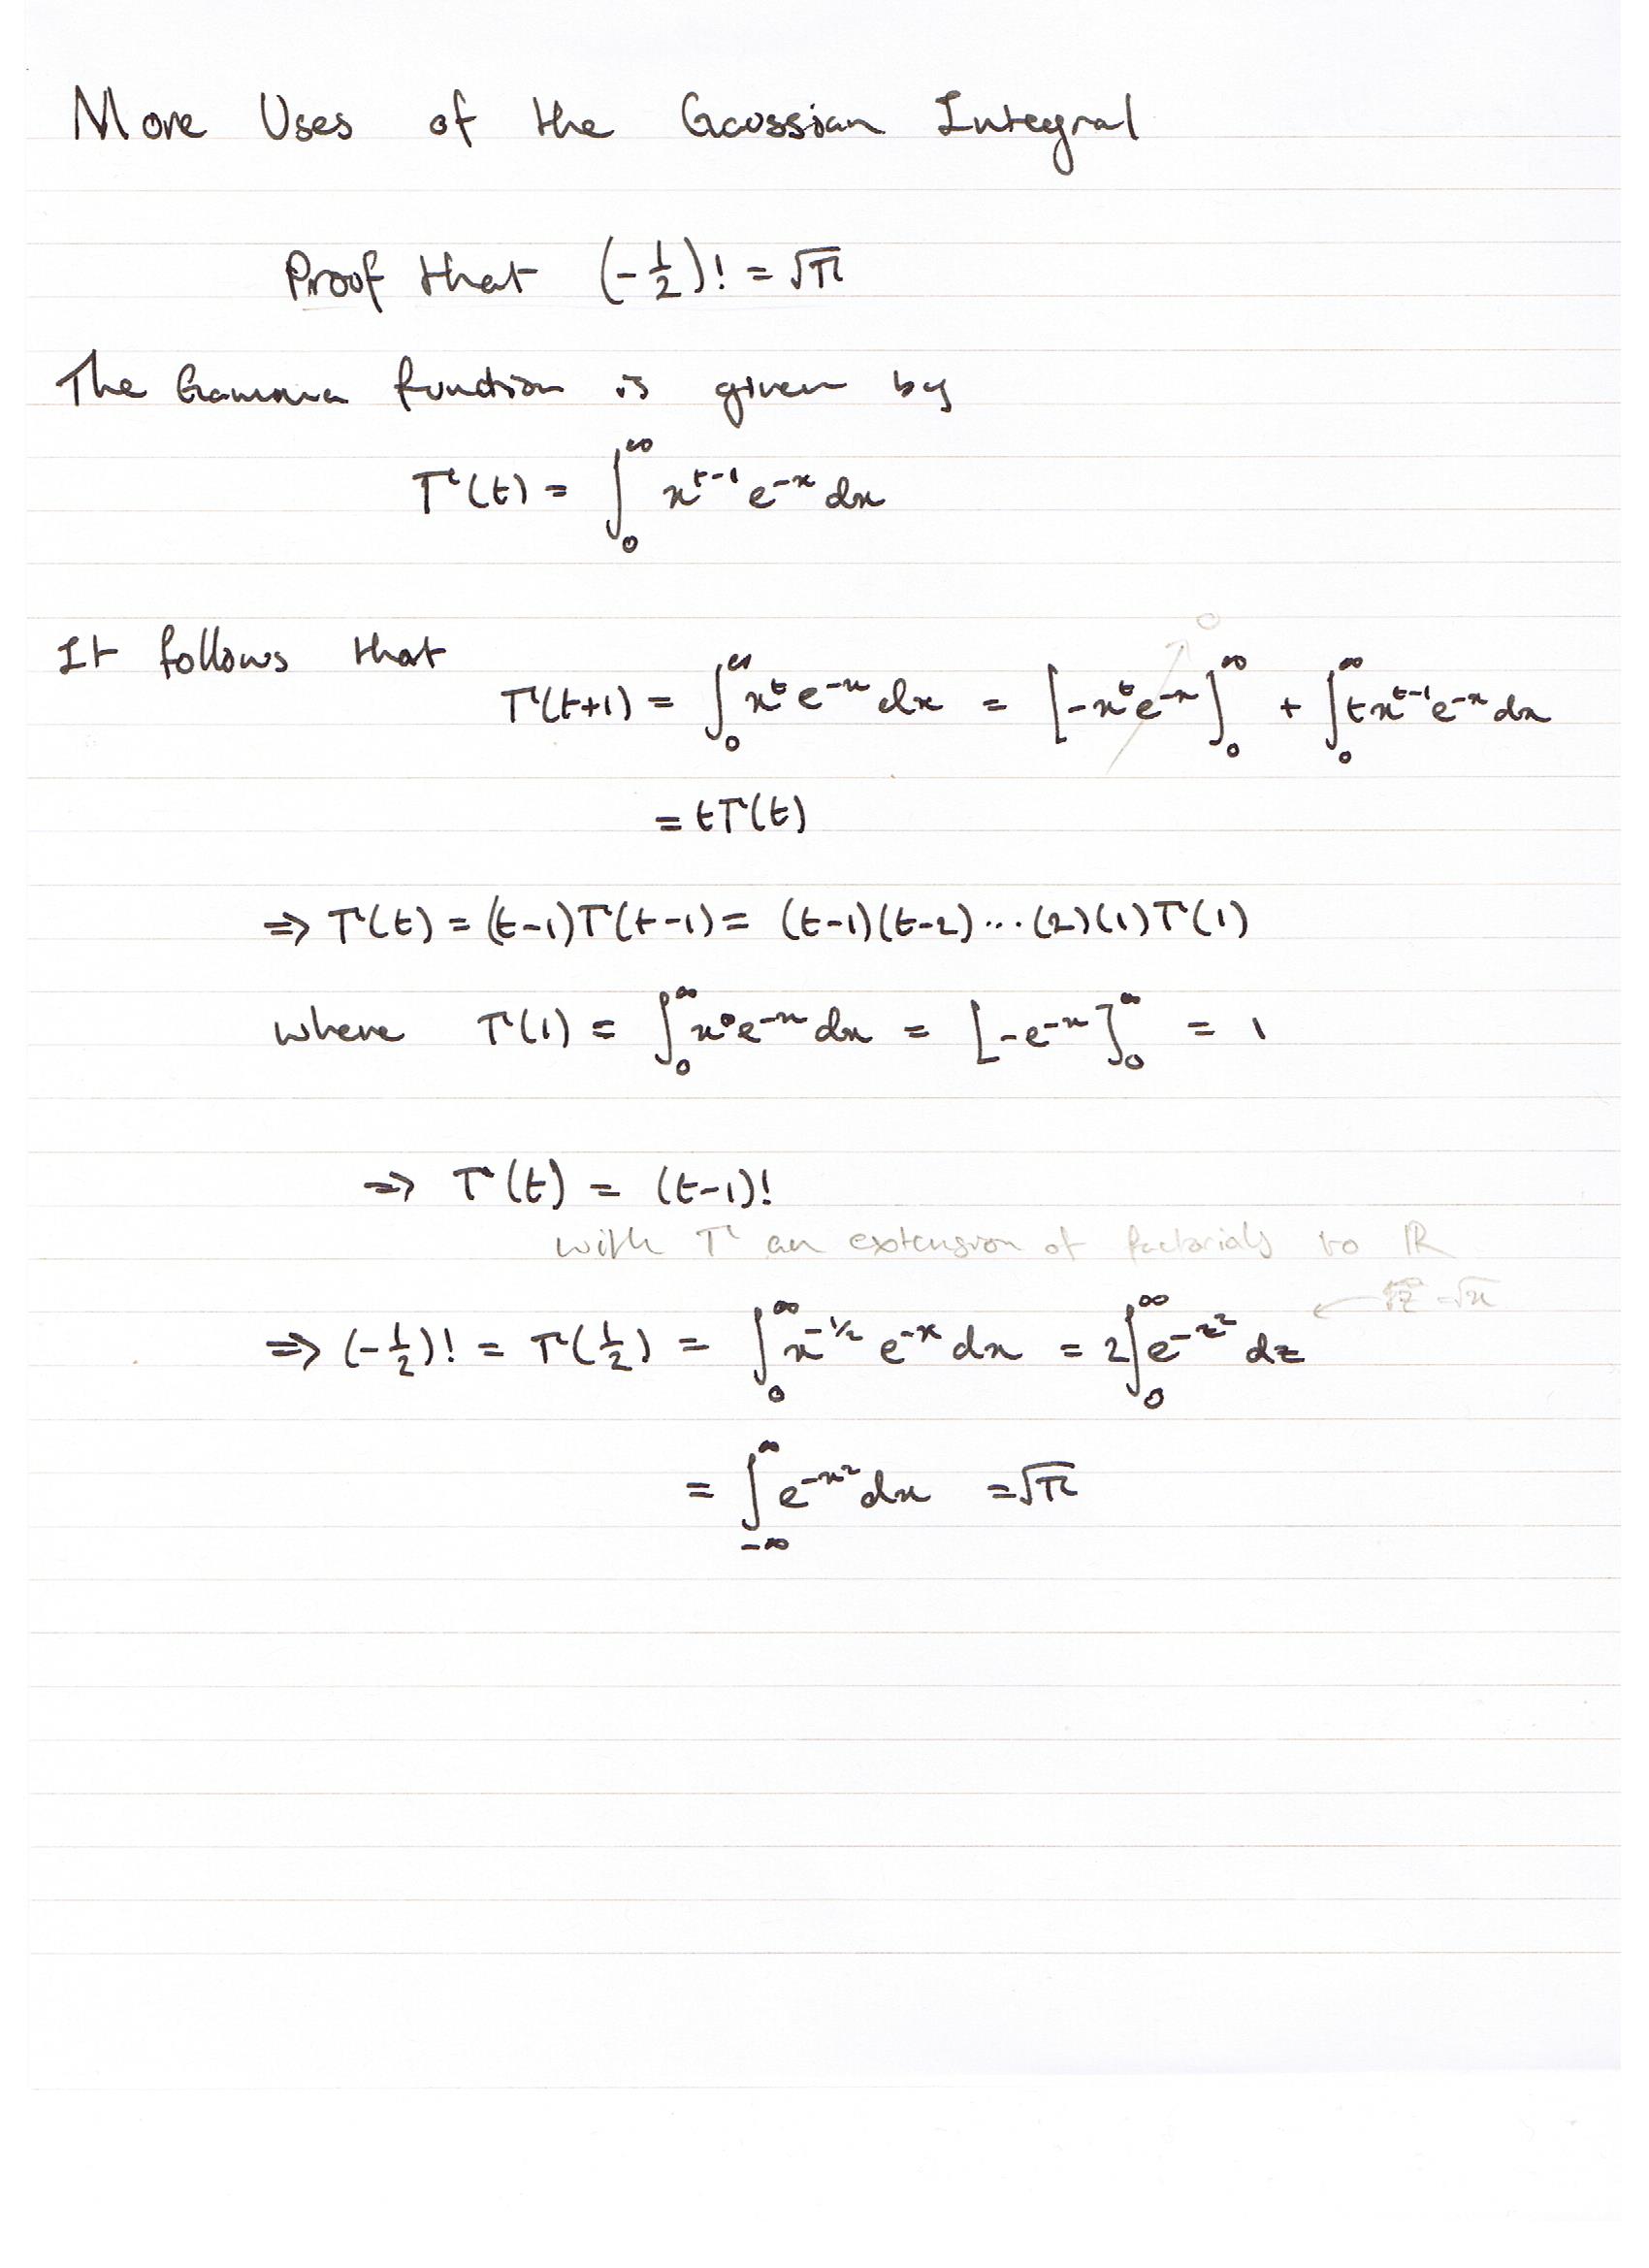 More Uses of the Gaussian Integral
Proof that (-1/2)! = √π
The Gamma function is given by
Γ(t) = ∫₀^∞ x^(t-1) e^(-x) dx
0
It follows that
Γ(t+1) = ∫₀^∞ x^t e^(-x) dx = [-x^t e^(-x)]₀^∞ + ∫₀^∞ t x^(t-1) e^(-x) dx
= tΓ(t)
⇒ Γ(t) = (t-1)Γ(t-1) = (t-1)(t-2)...(2)(1)Γ(1)
where Γ(1) = ∫₀^∞ x^0 e^(-x) dx = [-e^(-x)]₀^∞ = 1
⇒ Γ(t) = (t-1)!
with Γ an extension of factorials to ℝ
⇒ (-1/2)! = Γ(1/2) = ∫₀^∞ x^(-1/2) e^(-x) dx = 2∫₀^∞ e^(-z²) dz ←
= ∫_(-∞)^∞ e^(-x²) dx = √π